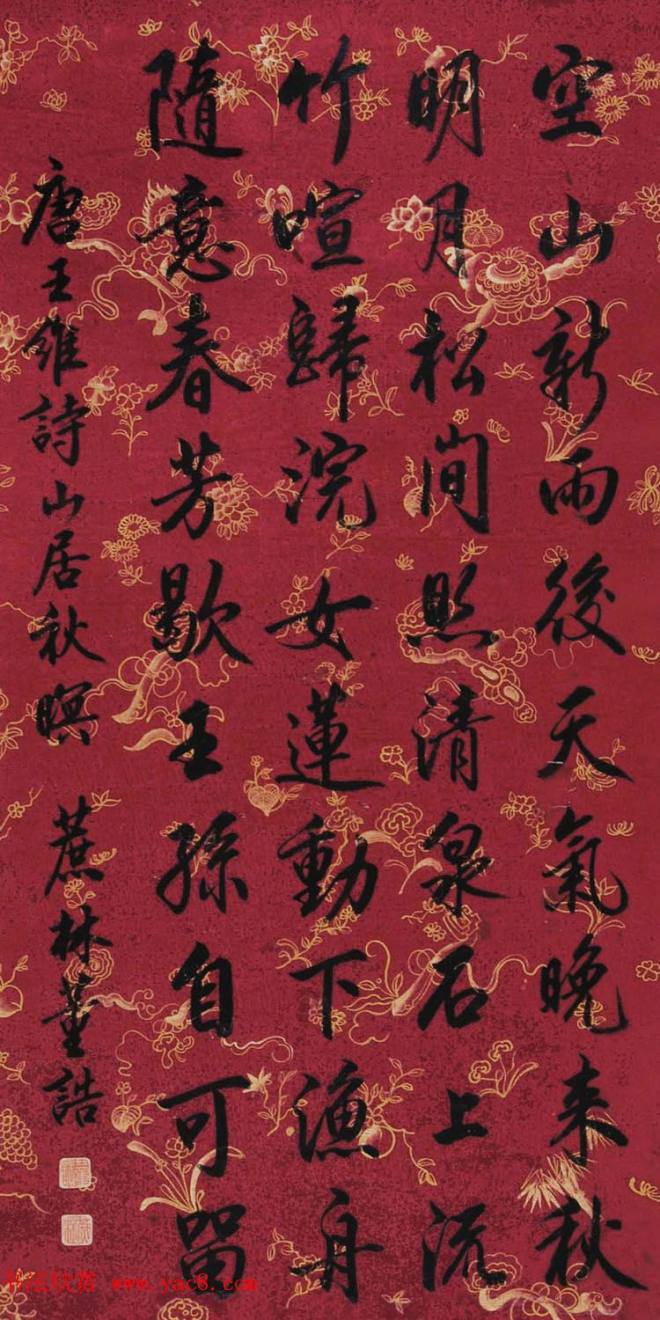 空山新雨後天氣晚來秋
明月松間照清泉石上流
竹喧歸浣女蓮動下漁舟
隨意春芳歇王孫自可留
唐王維詩山居秋暝 蔗林董誥
书法欣赏 www.yac8.com